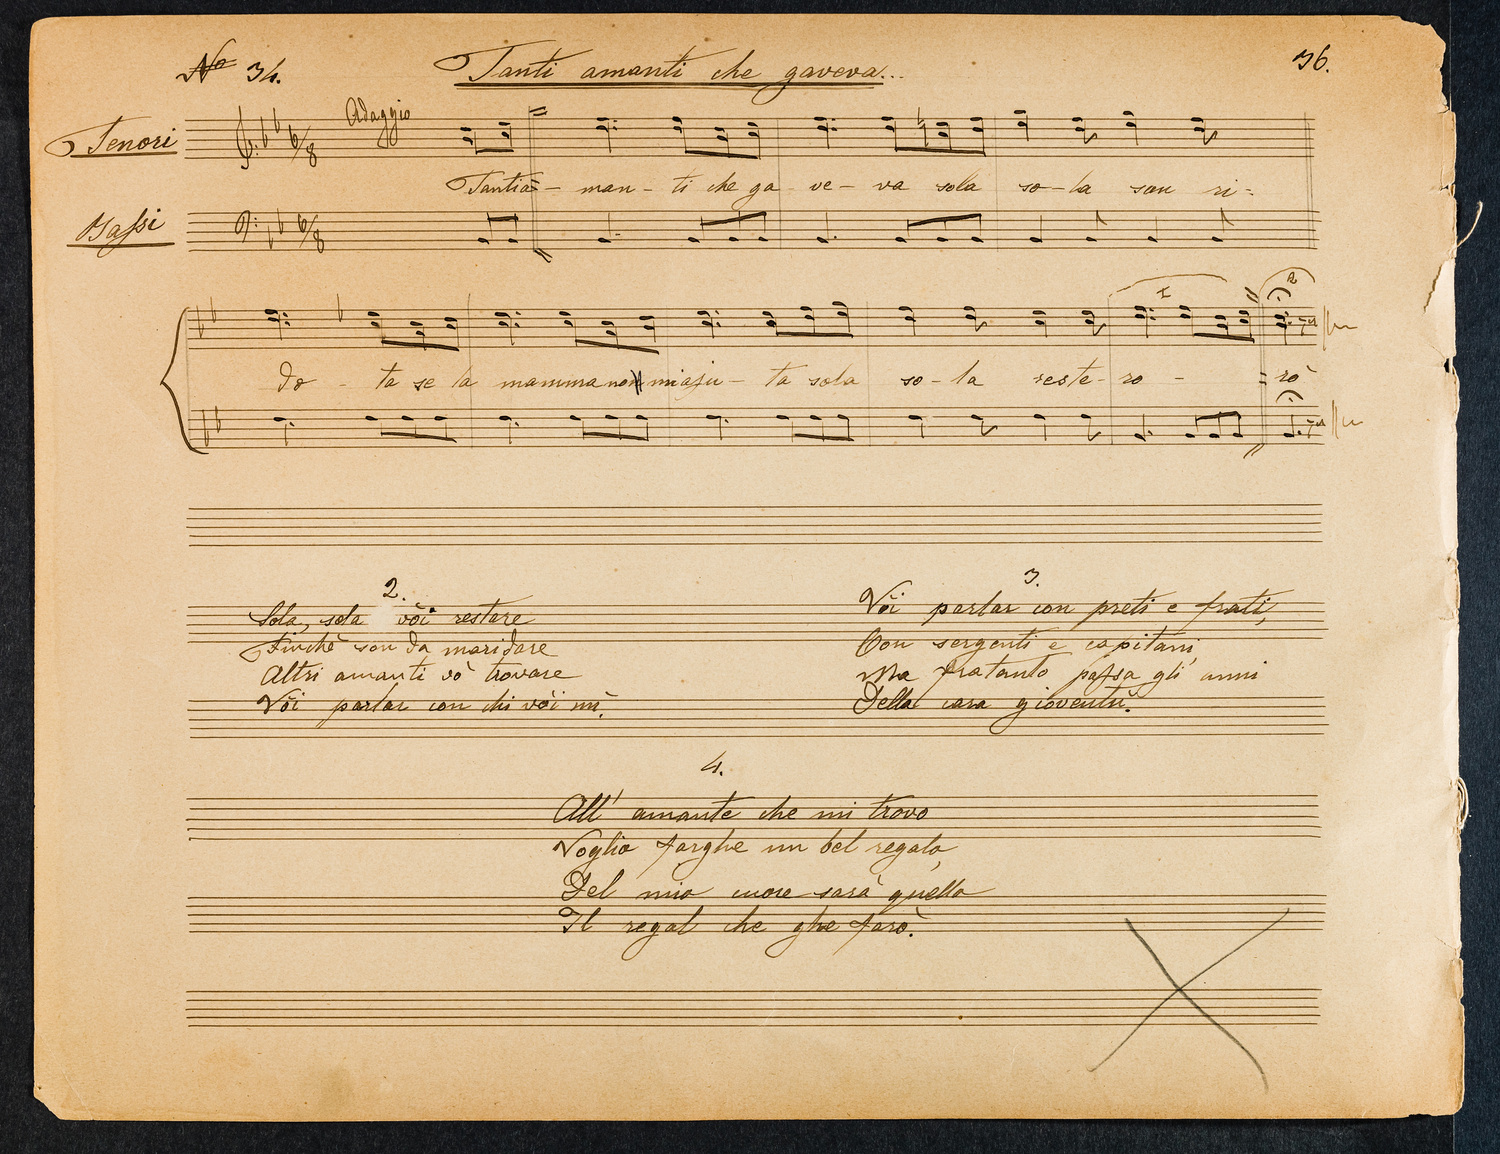 No 34. Tanti amanti che gaveva... 36.
Adagio
Tenori
6/8
Tantia - man - ti che ga - ve - va sola so - la son ri -
Bassi
6/8
I 2
do - ta se la mamma non miaju - ta sola so - la reste - ro - - rò
2.
Sola, sola vöi restare
Finchè son da maridare
Altri amanti vò trovare
Vöi parlar con chi vöi mì.
3.
Vöi parlar con preti e frati,
Con sergenti e capitani,
Ma fratanto passa gli anni
Della cara gioventù.
4.
All' amante che mi trovo
Voglio farghe un bel regalo,
Del mio cuore sarà quello
Il regal che ghe farò.